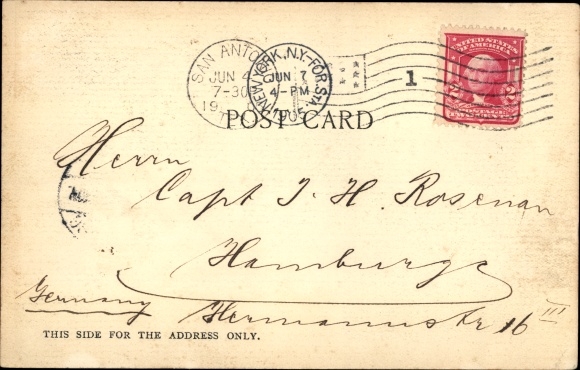 SAN ANTO
JUN 4
7-30
19
NEW YORK, N.Y.-FOR. STA
JUN 7
4-PM
1905
1
UNITED STATES
OF AMERICA
2 2
TWO CENTS
POST CARD
Herrn
Capt J. H. Rosenau
Hamburg
Germany Hermannstr 16 III
THIS SIDE FOR THE ADDRESS ONLY.